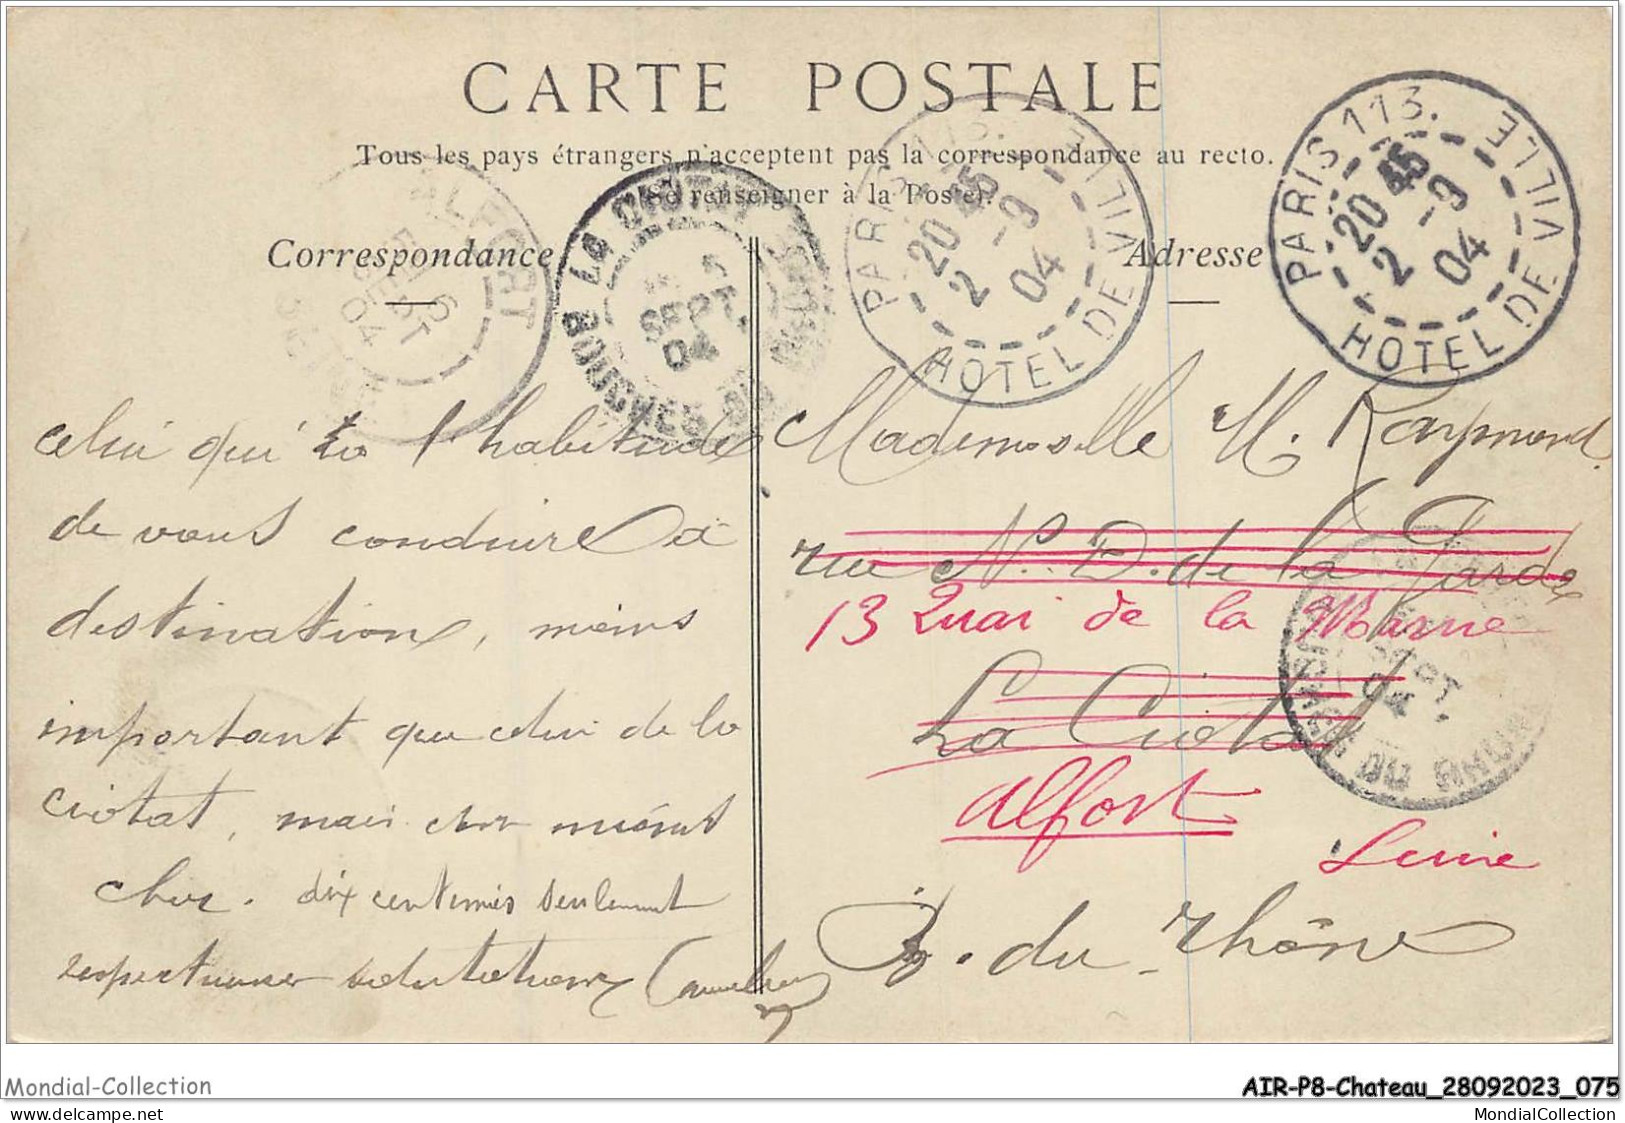 CARTE POSTALE
Tous les pays étrangers n'acceptent pas la correspondance au recto.
Se renseigner à la Poste.
Correspondance
Adresse
PARIS 113.
20 45
2 - 9
04
HOTEL DE VILLE
PARIS 113.
20 45
2 - 9
04
HOTEL DE VILLE
LA CIOTAT
SEPT.
04
BOUCHES DU RHONE
ALFORT
6
SEPT
04
celui qui a l'habitude
de vous conduire à
destination, moins
important que celui de la
Ciotat, mais
cher. dix centimes seulement
respectueuses salutations
Mademoiselle M. Raymond
rue N. D. de la Garde
13 Quai de la Marne
La Ciotat
Alfort
Seine
B. du Rhône
SEPT.
04
DU RHONE
Mondial-Collection
AIR-P8-Chateau_28092023_075
MondialCollection